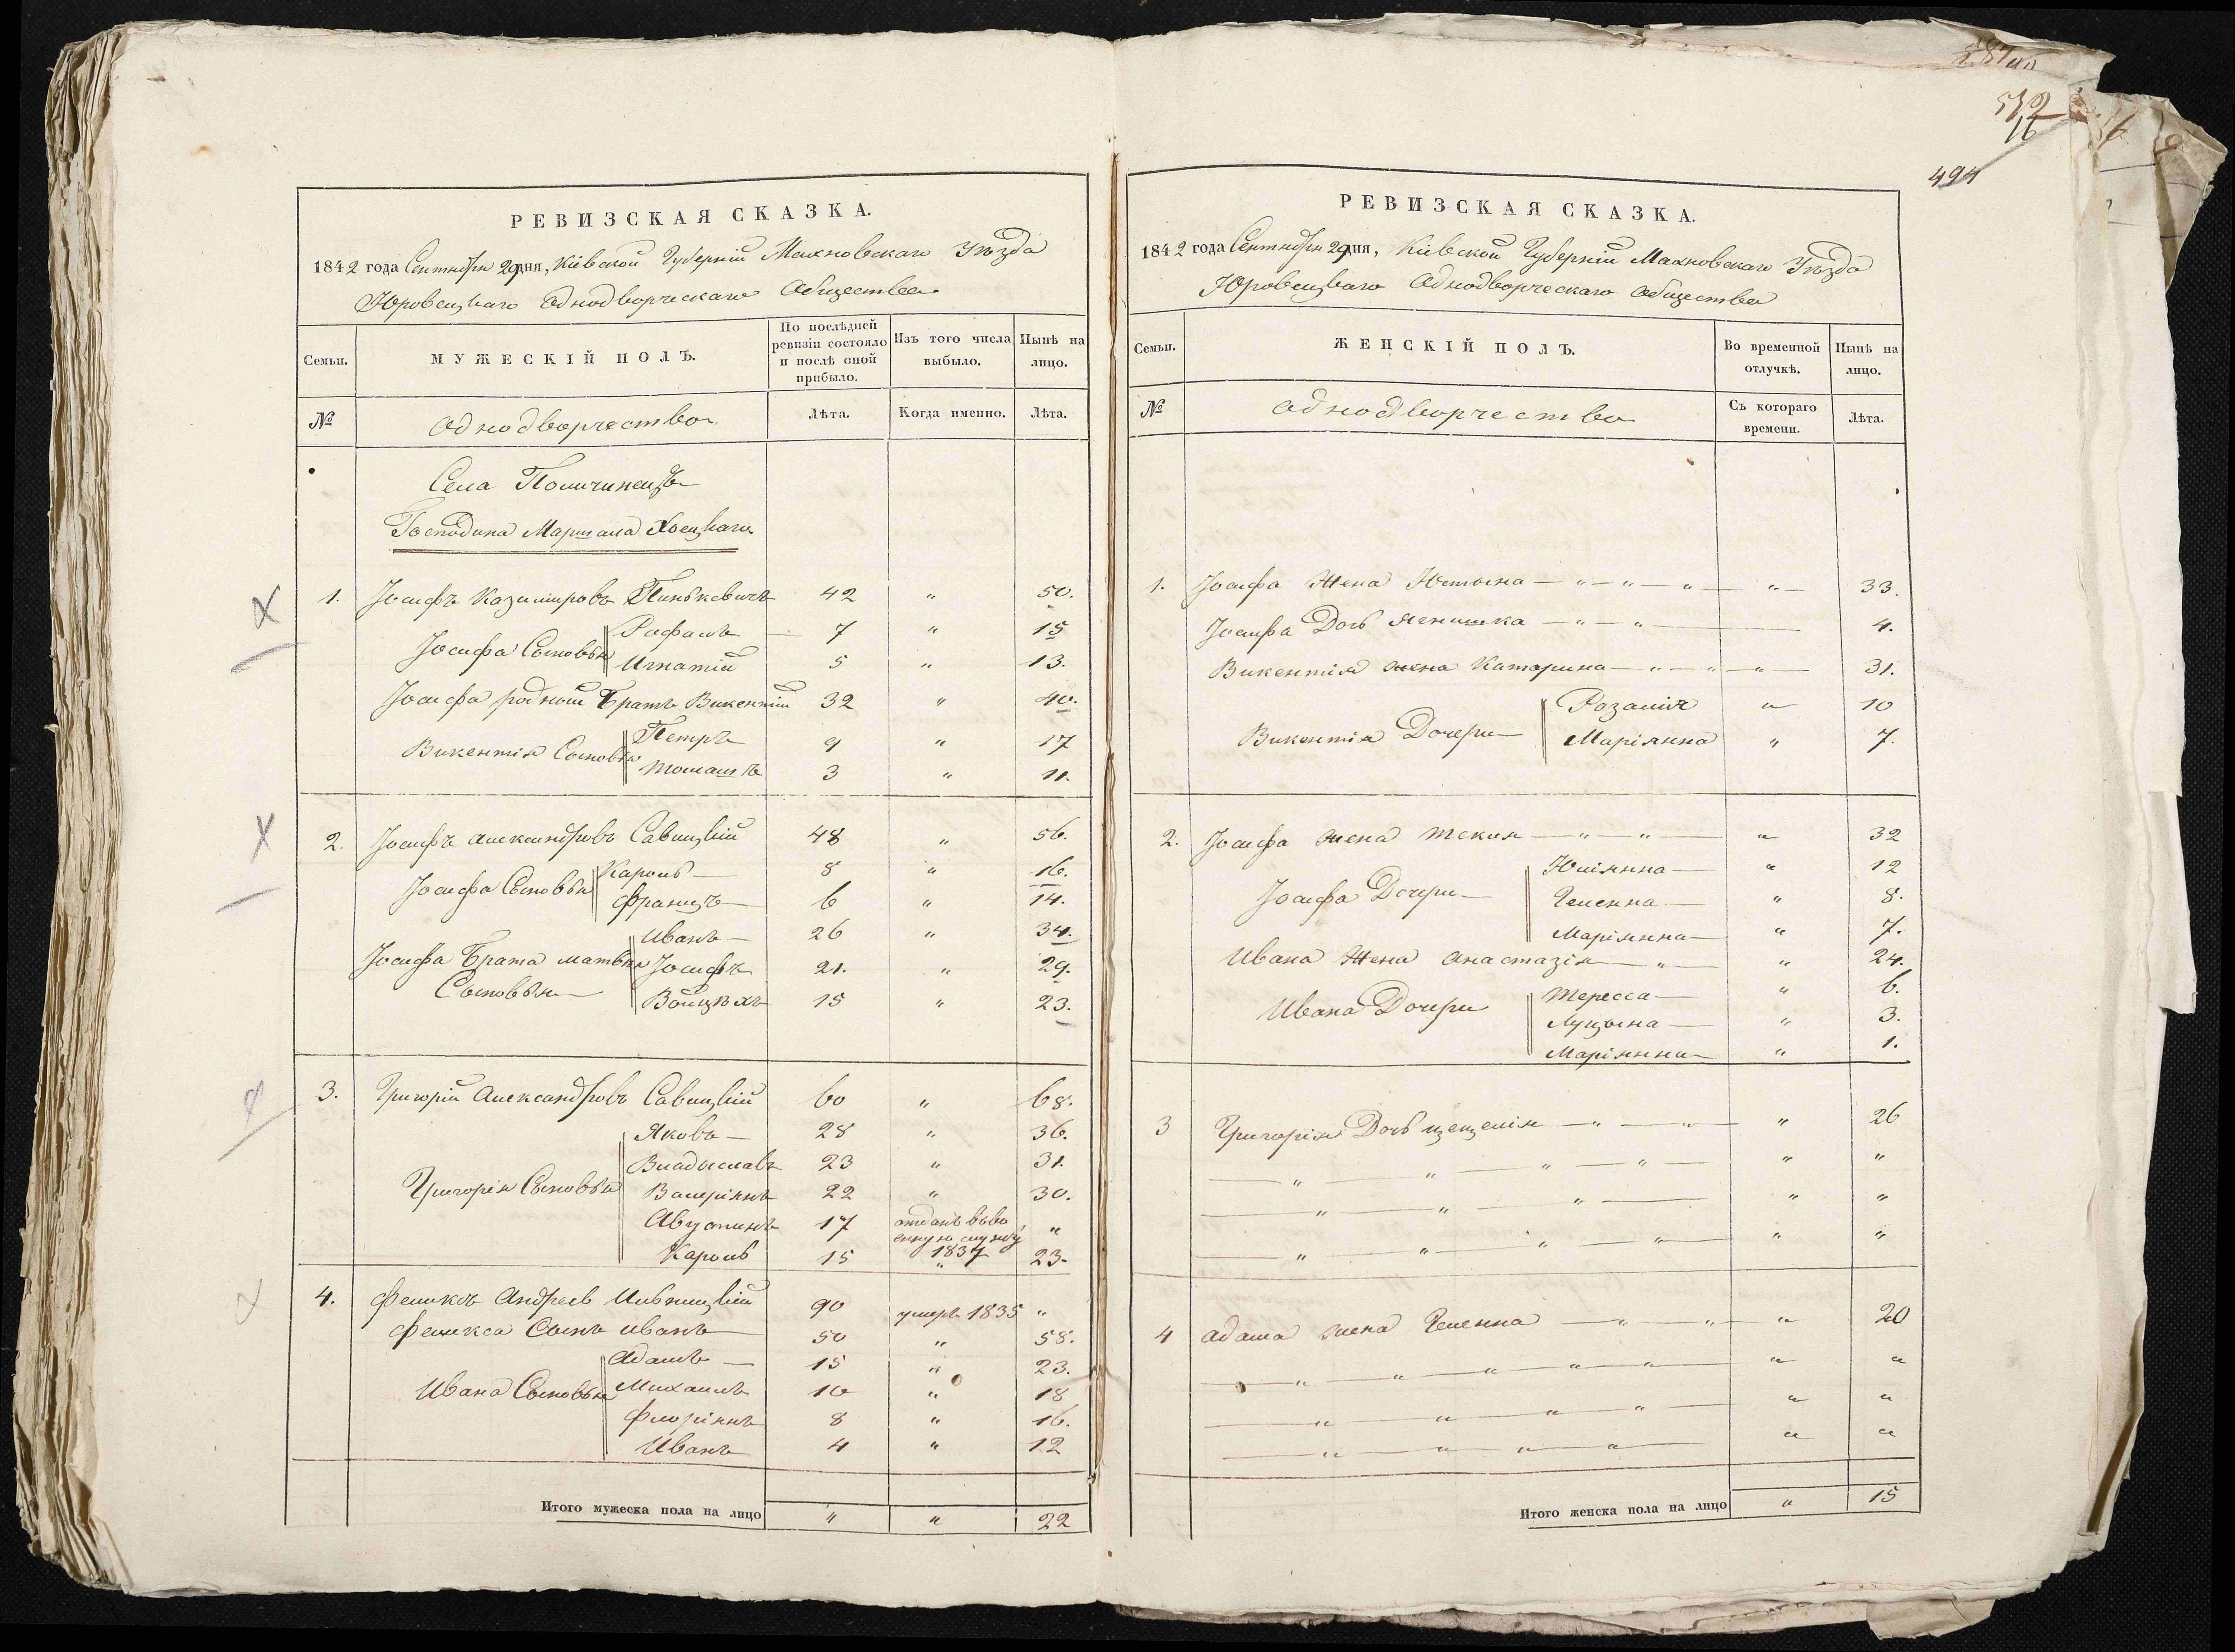 494
РЕВИЗСКАЯ СКАЗКА.
1842 года Сентября 29 дня, Кіевской Губерніи Махновскаго Уѣзда
Юровецкаго Однодворческаго Общества
Семьи.
МУЖЕСКІЙ ПОЛЪ.
По послѣдней ревизіи состояло и послѣ оной прибыло.
Изъ того числа выбыло.
Нынѣ на лицо.
№
Однодворчество
Лѣта.
Когда именно.
Лѣта.
Села
Господина Маршала
1. Іосифъ Казимировъ Пинькевичъ 42 " 50.
Іосифа Сыновья Рафалъ — 7 " 15
Игнатій 5 " 13.
Іосифа родной Братъ Викентій 32 " 40.
Викентія Сыновья Петръ 9 " 17
Томашъ 3 " 11.
2. Іосифъ Александровъ Савицкій 48 " 56.
Іосифа Сыновья Кароль — 8 " 16.
Францъ 6 " 14.
Иванъ — 26 " 34.
Іосифа Брата Іосифъ 21. " 29.
Сыновья — Войцѣхъ 15 " 23.
3. Григорій Александровъ Савицкій 60 " 68.
Яковъ — 28 " 36.
Владыславъ 23 " 31.
Григорія Сыновья Валеріянъ 22 " 30.
Августинъ 17 отданъ въ во
енную службу "
1837
Кароль 15 " 23.
4. Феликсъ Андреевъ 90 умеръ 1835 "
Феликса Сынъ Иванъ 50 " 58.
Адамъ — 15 " 23.
Ивана Сыновья Михаилъ 10 " 18
Флоріянъ 8 " 16.
Иванъ 4 " 12
Итого мужеска пола на лицо " " 22
РЕВИЗСКАЯ СКАЗКА.
1842 года Сентября 29 дня, Кіевской Губерніи Махновскаго Уѣзда
Юровецкаго Однодворческаго Общества
Семьи.
ЖЕНСКІЙ ПОЛЪ.
Во временной отлучкѣ.
Нынѣ на лицо.
№
Однодворчество
Съ котораго времени.
Лѣта.
1. Іосифа Жена Юстына — " — " — " — " — 33.
Іосифа Дочь Ягнишка — " — " — 4.
Викентія жена Катарина — " — " — " — 31.
Викентія Дочери — Розалія " 10
Маріянна " 7.
2. Іосифа жена Текля — " — " — " 32
Юліянна — " 12
Іосифа Дочери — Гелена — " 8.
Маріянна — " 7.
Ивана Жена Анастазія — " — " 24.
Тересса — " 6.
Ивана Дочери Луцына — " 3.
Маріянна — " 1.
3 Григорія Дочь Цецелія — " — " — " 26
— " — " — " — " — " "
— " — " — " — " "
— " — " — " — " — " "
4 Адама жена Гелена — " — " — " 20
— " — " — " — " — " — " "
— " — " — " — " — " "
— " — " — " — " — " "
Итого женска пола на лицо " 15